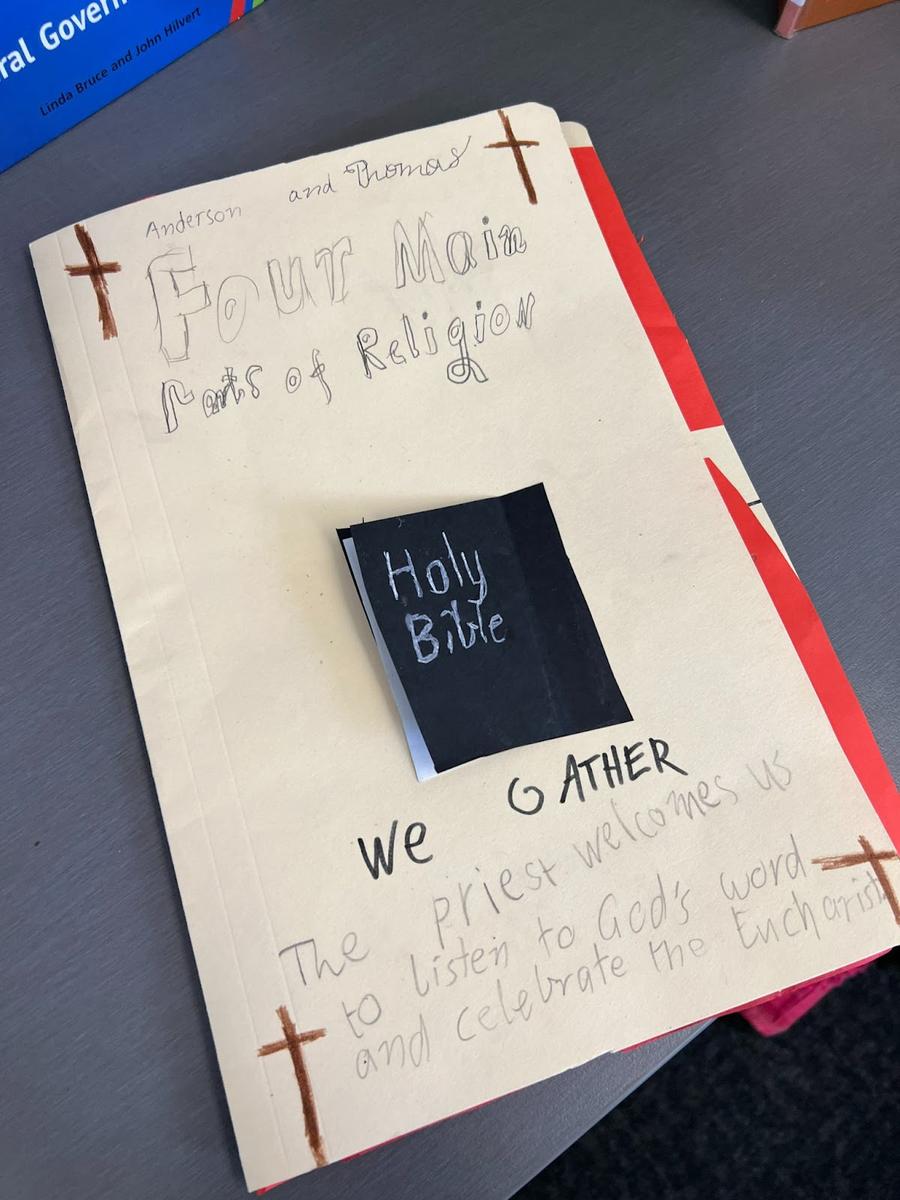 ral Govern
Linda Bruce and John Hilvert
Anderson and Thomas
Four Main
Parts of Religion
Holy
Bible
We GATHER
The priest welcomes us
to listen to God's word
and celebrate the Eucharist